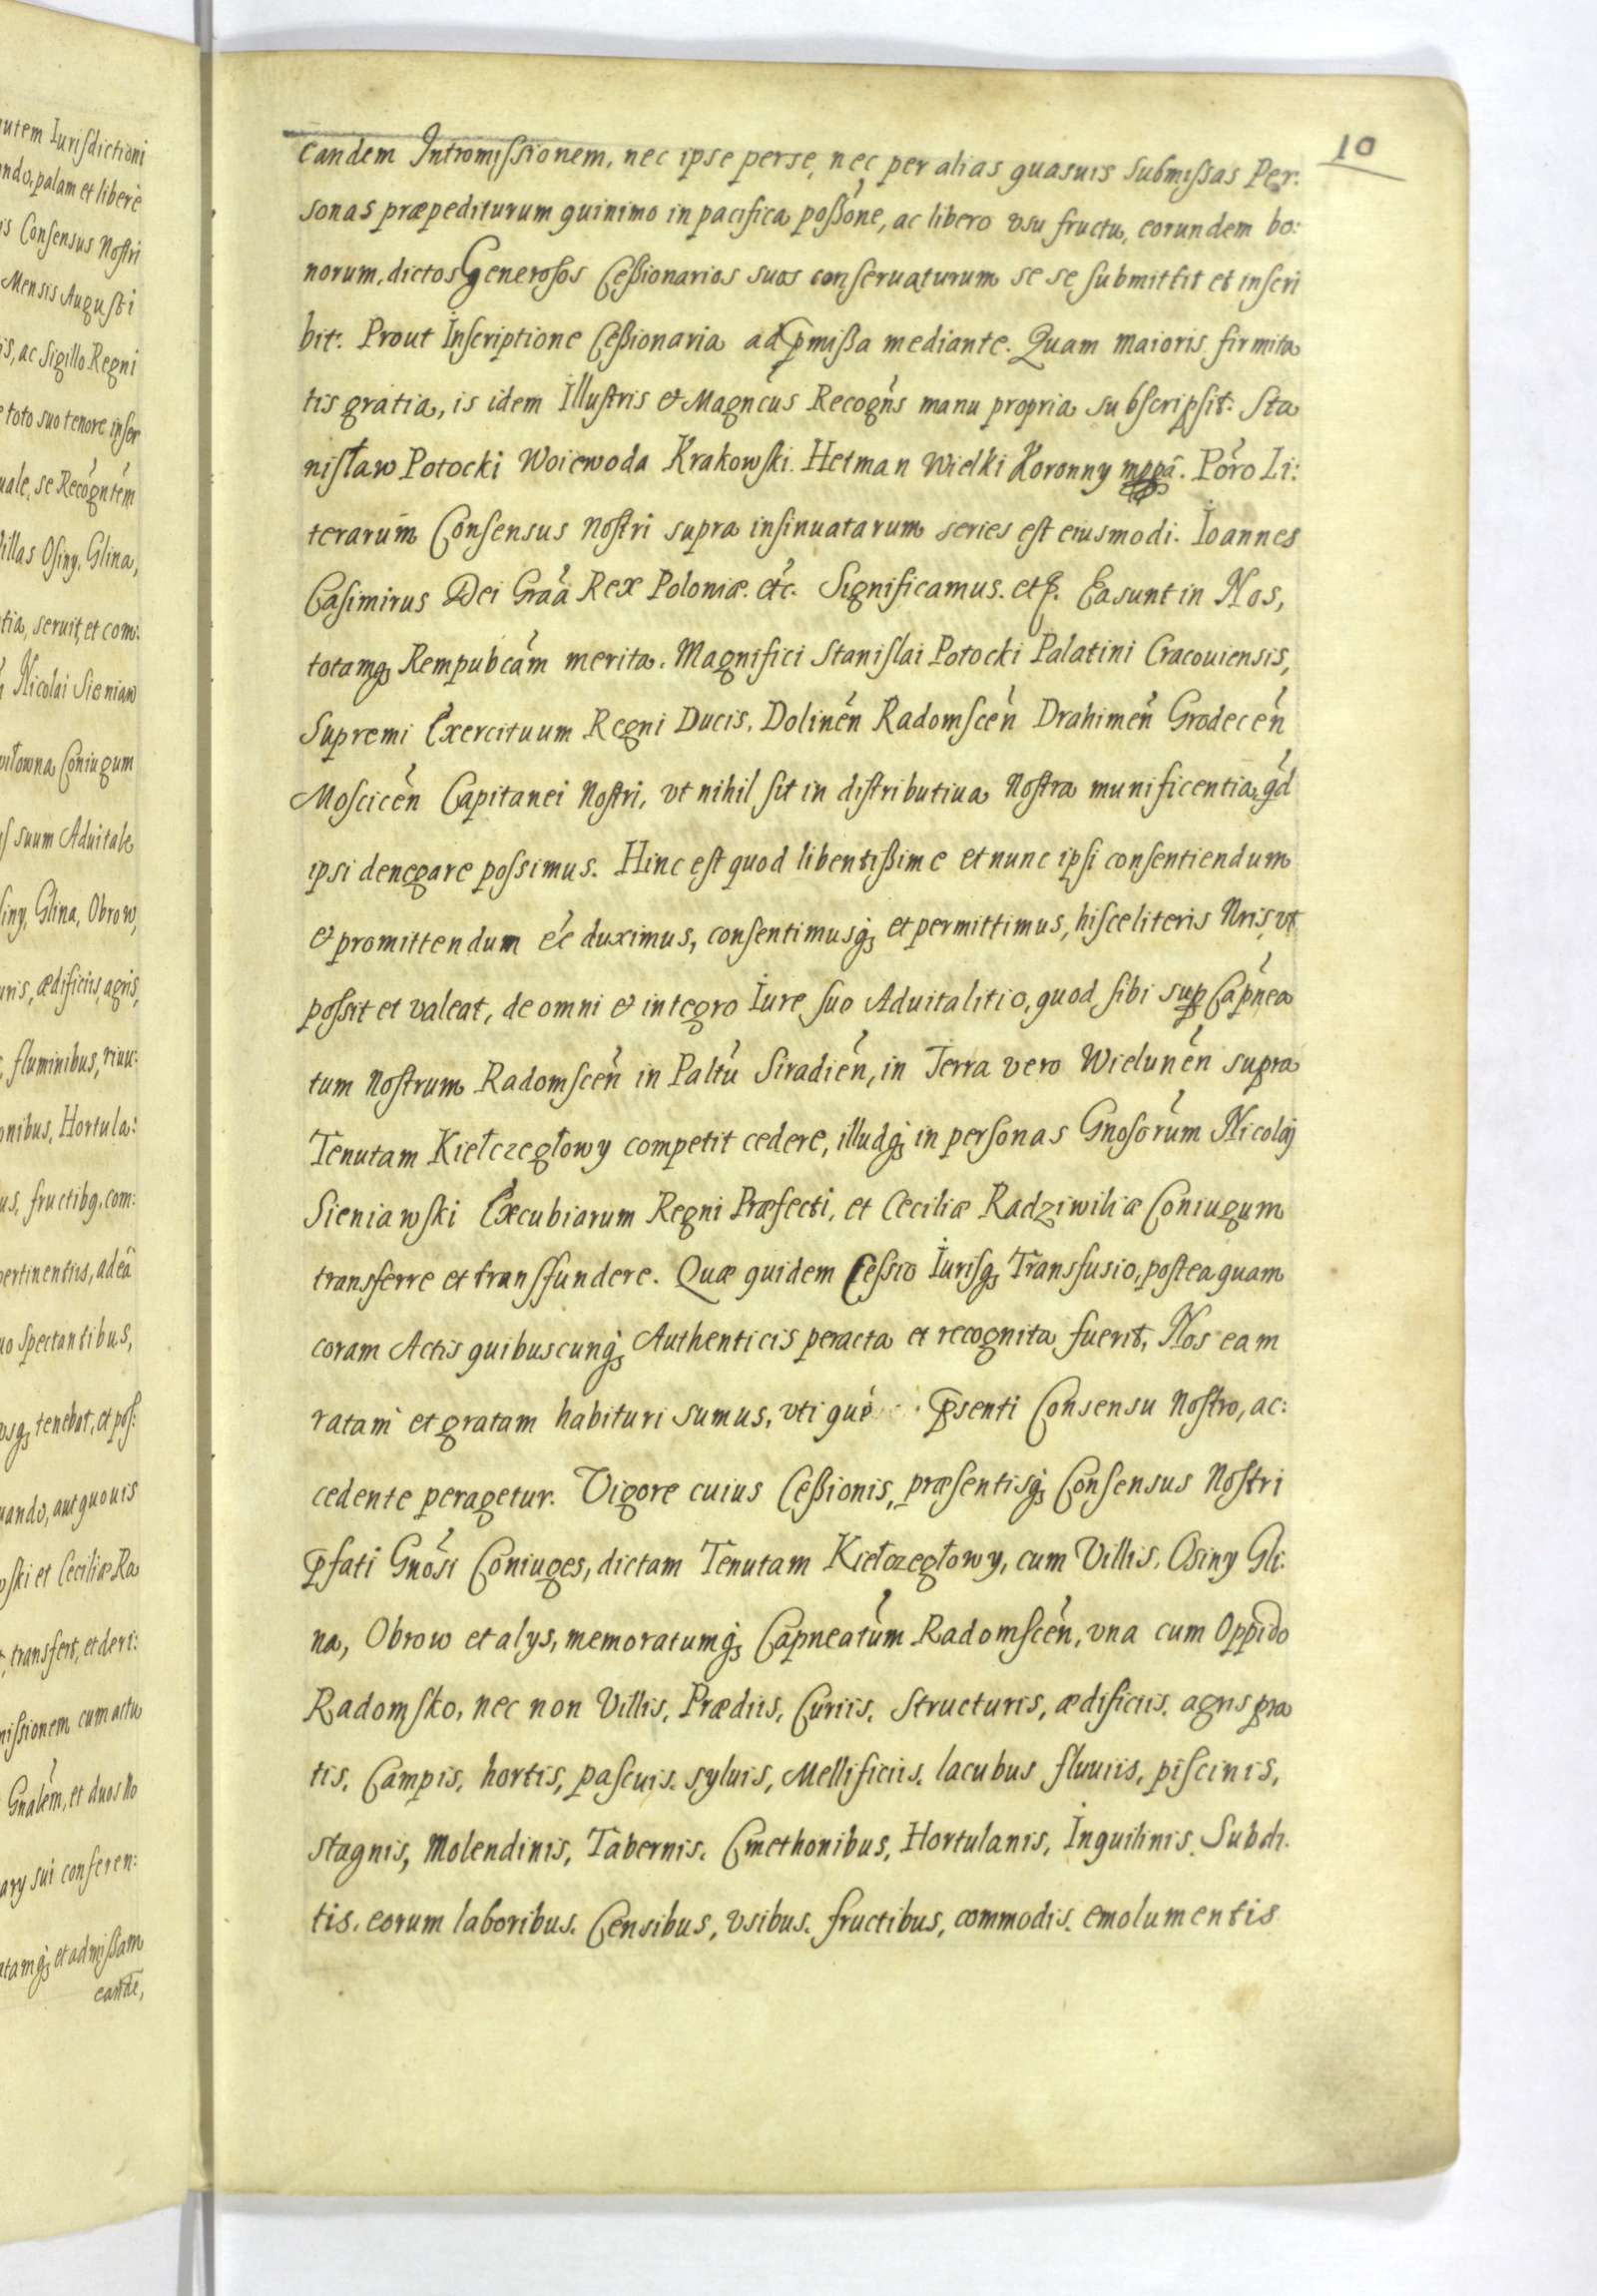 utem Iurisdictioni
ndo, palam et liberè
is Consensus Nostri
Mensis Augusti
is, ac Sigillo Regni
toto suo tenore inser
uale, se Recogntem
illas Osiny, Glina,
tia, seruit, et com:
Nicolai Sieniaw
wiłowna Coniugum
suum Aduitale
siny, Glina, Obrow,
uris, ædificiis, agris,
fluminibus, riuu:
onibus, Hortula:
us, fructibq, com:
pertinentiis, ad eã
uo spectantibus,
usq, tenebat, et pos:
uando, aut quouis
wski et Ceciliæ Ra
transfert, et deri:
missionem cum actu
Gnalem, et duos No
ary sui conferen:
atamq, et admissam
eande,
10
eandem Intromissionem, nec ipse per se, nec per alias quasuis submissas Per:
sonas præpediturum quinimo in pacifica possone, ac libero vsu fructu, eorundem bo:
norum, dictos Generosos Cessionarios suos conseruaturum se se submittit et inscri
bit. Prout Inscriptione Cessionaria ad pmissa mediante. Quam maioris firmita
tis gratia, is idem Illustris & Magncus Recogns manu propria subscripsit. Sta
nisław Potocki Woiewoda Krakowski. Hetman Wielki Koronny mppã. Poro Li:
terarum Consensus Nostri supra insinuatarum series est eiusmodi. Ioannes
Casimirus Dei Graã Rex Poloniæ. etc. Significamus. etc. Ea sunt in Nos,
totamq, Rempubcam merita. Magnifici Stanislai Potocki Palatini Cracouiensis,
Supremi Exercituum Regni Ducis, Dolinen Radomscen Drahimen Grodecen
Moscicen Capitanei Nostri, vt nihil sit in distributiua Nostra munificentia, qd
ipsi denegare possimus. Hinc est quod libentissime et nunc ipsi consentiendum
& promittendum eẽ duximus, consentimusq, et permittimus, hisce literis Nris, vt
possit et valeat, de omni & integro Iure suo Aduitalitio, quod sibi sup Capnea
tum Nostrum Radomscen in Paltu Siradien, in Terra vero Wielunen supra
Tenutam Kiełczegłowy competit cedere, illudq, in personas Gnosorum Nicolaij
Sieniawski Excubiarum Regni Præfecti, et Ceciliæ Radziwiliæ Coniugum
transferre et transfundere. Quæ quidem Cessio Iurisq, Transfusio, posteaquam
coram Actis quibuscunq, Authenticis peracta et recognita fuerit, Nos eam
ratam et gratam habituri sumus, vti què psenti Consensu Nostro, ac:
cedente peragetur. Vigore cuius Cessionis, præsentisq, Consensus Nostri
pfati Gnosi Coniuges, dictam Tenutam Kiełczegłowy, cum Villis, Osiny Gli:
na, Obrow et alys, memoratumq, Capneatum Radomscen, vna cum Oppido
Radomsko, nec non Villis, Prædiis, Curiis, Structuris, ædificiis, agris pra
tis, Campis, hortis, pascuis, syluis, Mellificiis, lacubus fluuiis, piscinis,
stagnis, Molendinis, Tabernis, Cmethonibus, Hortulanis, Inquilinis, Subdi:
tis, eorum laboribus, Censibus, vsibus, fructibus, commodis, emolumentis